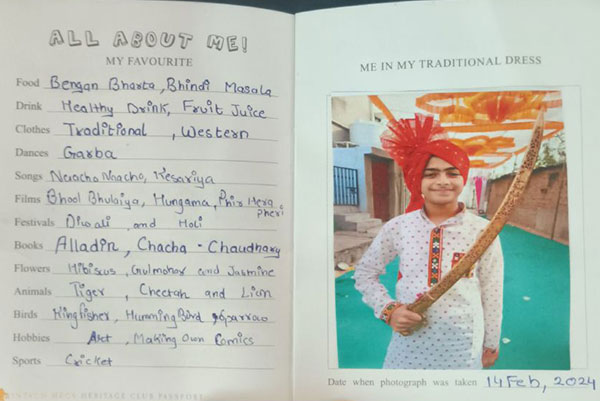 ALL ABOUT ME!
MY FAVOURITE
Food Bengan Bharta, Bhindi Masala
Drink Healthy Drink, Fruit Juice
Clothes Traditional, Western
Dances Garba
Songs Naacho Naacho, Kesariya
Films Bhool Bhulaiya, Hungama, Phir Hera
Pheri
Festivals Diwali, and Holi
Books Alladin, Chacha - Chaudhary
Flowers Hibisus, Gulmohar and Jasmine
Animals Tiger, Cheetah and Lion
Birds Kingfisher, Humming Bird, Sparrow
Hobbies Art, Making Own Comics
Sports Cricket
HERITAGE CLUB PASSPORT
ME IN MY TRADITIONAL DRESS
Date when photograph was taken 14 Feb, 2024